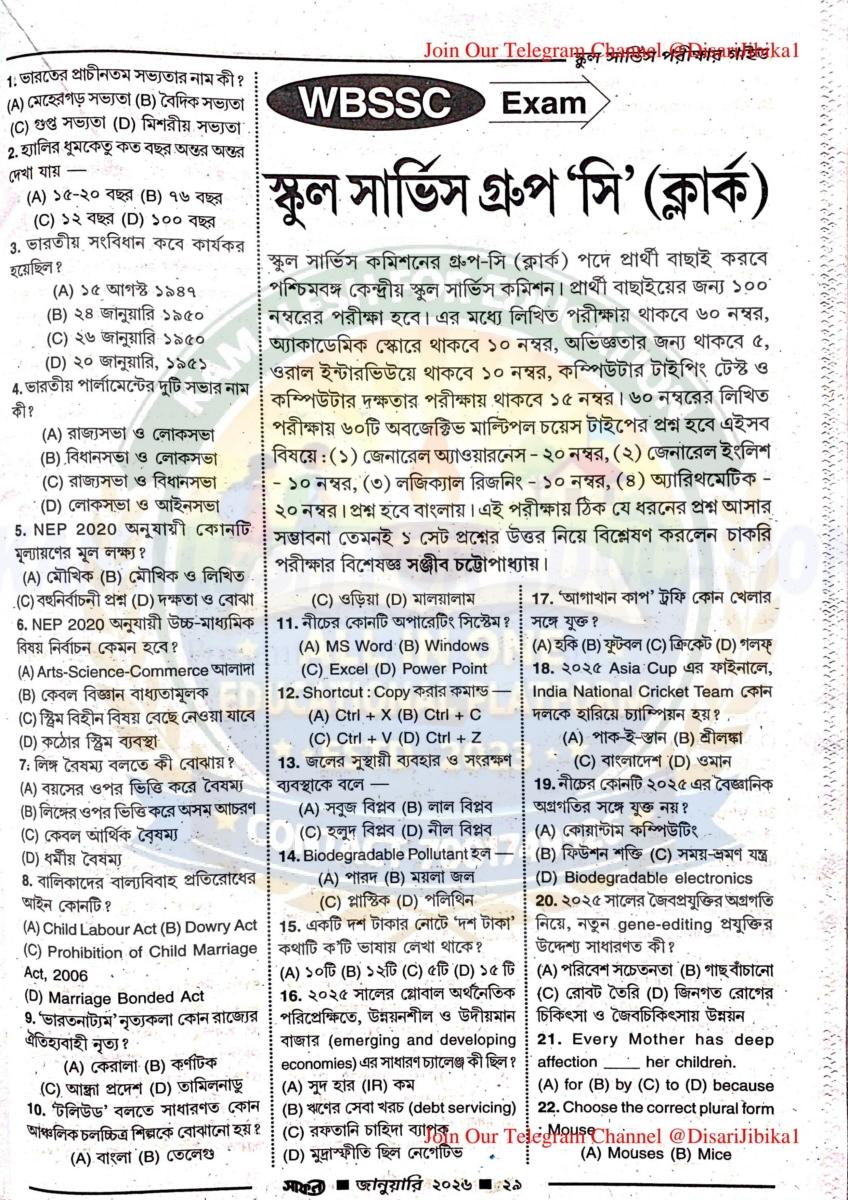 Join Our Telegram Channel @DisariJibika1
স্কুল সার্ভিস পরীক্ষার গাইড
WBSSC Exam
স্কুল সার্ভিস গ্রুপ ‘সি’ (ক্লার্ক)
স্কুল সার্ভিস কমিশনের গ্রুপ-সি (ক্লার্ক) পদে প্রার্থী বাছাই করবে
পশ্চিমবঙ্গ কেন্দ্রীয় স্কুল সার্ভিস কমিশন। প্রার্থী বাছাইয়ের জন্য ১০০
নম্বরের পরীক্ষা হবে। এর মধ্যে লিখিত পরীক্ষায় থাকবে ৬০ নম্বর,
অ্যাকাডেমিক স্কোরে থাকবে ১০ নম্বর, অভিজ্ঞতার জন্য থাকবে ৫,
ওরাল ইন্টারভিউয়ে থাকবে ১০ নম্বর, কম্পিউটার টাইপিং টেস্ট ও
কম্পিউটার দক্ষতার পরীক্ষায় থাকবে ১৫ নম্বর। ৬০ নম্বরের লিখিত
পরীক্ষায় ৬০টি অবজেক্টিভ মাল্টিপল চয়েস টাইপের প্রশ্ন হবে এইসব
বিষয়ে : (১) জেনারেল অ্যাওয়ারনেস - ২০ নম্বর, (২) জেনারেল ইংলিশ
- ১০ নম্বর, (৩) লজিক্যাল রিজনিং - ১০ নম্বর, (৪) অ্যারিথমেটিক -
২০ নম্বর। প্রশ্ন হবে বাংলায়। এই পরীক্ষায় ঠিক যে ধরনের প্রশ্ন আসার
সম্ভাবনা তেমনই ১ সেট প্রশ্নের উত্তর নিয়ে বিশ্লেষণ করলেন চাকরি
পরীক্ষার বিশেষজ্ঞ সঞ্জীব চট্টোপাধ্যায়।
1. ভারতের প্রাচীনতম সভ্যতার নাম কী?
(A) মেহেরগড় সভ্যতা (B) বৈদিক সভ্যতা
(C) গুপ্ত সভ্যতা (D) মিশরীয় সভ্যতা
2. হ্যালির ধুমকেতু কত বছর অন্তর অন্তর
দেখা যায় —
(A) ১৫-২০ বছর (B) ৭৬ বছর
(C) ১২ বছর (D) ১০০ বছর
3. ভারতীয় সংবিধান কবে কার্যকর
হয়েছিল?
(A) ১৫ আগস্ট ১৯৪৭
(B) ২৪ জানুয়ারি ১৯৫০
(C) ২৬ জানুয়ারি ১৯৫০
(D) ২০ জানুয়ারি, ১৯৫১
4. ভারতীয় পার্লামেন্টের দুটি সভার নাম
কী?
(A) রাজ্যসভা ও লোকসভা
(B) বিধানসভা ও লোকসভা
(C) রাজ্যসভা ও বিধানসভা
(D) লোকসভা ও আইনসভা
5. NEP 2020 অনুযায়ী কোনটি
মূল্যায়ণের মূল লক্ষ্য?
(A) মৌখিক (B) মৌখিক ও লিখিত
(C) বহুনির্বাচনী প্রশ্ন (D) দক্ষতা ও বোঝা
6. NEP 2020 অনুযায়ী উচ্চ-মাধ্যমিক
বিষয় নির্বাচন কেমন হবে?
(A) Arts-Science-Commerce আলাদা
(B) কেবল বিজ্ঞান বাধ্যতামূলক
(C) স্ট্রিম বিহীন বিষয় বেছে নেওয়া যাবে
(D) কঠোর স্ট্রিম ব্যবস্থা
7. লিঙ্গ বৈষম্য বলতে কী বোঝায়?
(A) বয়সের ওপর ভিত্তি করে বৈষম্য
(B) লিঙ্গের ওপর ভিত্তি করে অসম আচরণ
(C) কেবল আর্থিক বৈষম্য
(D) ধর্মীয় বৈষম্য
8. বালিকাদের বাল্যবিবাহ প্রতিরোধের
আইন কোনটি?
(A) Child Labour Act (B) Dowry Act
(C) Prohibition of Child Marriage
Act, 2006
(D) Marriage Bonded Act
9. ‘ভারতনাট্যম’ নৃত্যকলা কোন রাজ্যের
ঐতিহ্যবাহী নৃত্য?
(A) কেরালা (B) কর্ণটিক
(C) আন্ধ্রা প্রদেশ (D) তামিলনাড়ু
10. ‘টলিউড’ বলতে সাধারণত কোন
আঞ্চলিক চলচ্চিত্র শিল্পকে বোঝানো হয়?
(A) বাংলা (B) তেলেগু
(C) ওড়িয়া (D) মালয়ালাম
11. নীচের কোনটি অপারেটিং সিস্টেম?
(A) MS Word (B) Windows
(C) Excel (D) Power Point
12. Shortcut : Copy করার কমান্ড —
(A) Ctrl + X (B) Ctrl + C
(C) Ctrl + V (D) Ctrl + Z
13. জলের সুস্থায়ী ব্যবহার ও সংরক্ষণ
ব্যবস্থাকে বলে —
(A) সবুজ বিপ্লব (B) লাল বিপ্লব
(C) হলুদ বিপ্লব (D) নীল বিপ্লব
14. Biodegradable Pollutant হল —
(A) পারদ (B) ময়লা জল
(C) প্লাস্টিক (D) পলিথিন
15. একটি দশ টাকার নোটে ‘দশ টাকা’
কথাটি ক’টি ভাষায় লেখা থাকে?
(A) ১০টি (B) ১২টি (C) ৫টি (D) ১৫ টি
16. ২০২৫ সালের গ্লোবাল অর্থনৈতিক
পরিপ্রেক্ষিতে, উন্নয়নশীল ও উদীয়মান
বাজার (emerging and developing
economies) এর সাধারণ চ্যালেঞ্জ কী ছিল?
(A) সুদ হার (IR) কম
(B) ঋণের সেবা খরচ (debt servicing)
(C) রফতানি চাহিদা ব্যাপক
(D) মুদ্রাস্ফীতি ছিল নেগেটিভ
17. ‘আগাখান কাপ’ ট্রফি কোন খেলার
সঙ্গে যুক্ত?
(A) হকি (B) ফুটবল (C) ক্রিকেট (D) গলফ
18. ২০২৫ Asia Cup এর ফাইনালে,
India National Cricket Team কোন
দলকে হারিয়ে চ্যাম্পিয়ন হয়?
(A) পাক-ই-স্তান (B) শ্রীলঙ্কা
(C) বাংলাদেশ (D) ওমান
19. নীচের কোনটি ২০২৫ এর বৈজ্ঞানিক
অগ্রগতির সঙ্গে যুক্ত নয়?
(A) কোয়ান্টাম কম্পিউটিং
(B) ফিউশন শক্তি (C) সময়-ভ্রমণ যন্ত্র
(D) Biodegradable electronics
20. ২০২৫ সালের জৈবপ্রযুক্তির অগ্রগতি
নিয়ে, নতুন gene-editing প্রযুক্তির
উদ্দেশ্য সাধারণত কী?
(A) পরিবেশ সচেতনতা (B) গাছ বাঁচানো
(C) রোবট তৈরি (D) জিনগত রোগের
চিকিৎসা ও জৈবচিকিৎসায় উন্নয়ন
21. Every Mother has deep
affection ____ her children.
(A) for (B) by (C) to (D) because
22. Choose the correct plural form
: Mouse
(A) Mouses (B) Mice
Join Our Telegram Channel @DisariJibika1
সাফল্য ■ জানুয়ারি ২০২৬ ■ ২৯